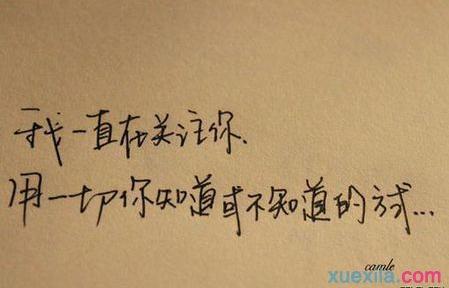 我一直在关注你.
用一切你知道或不知道的方式...
camle
xuexila.com